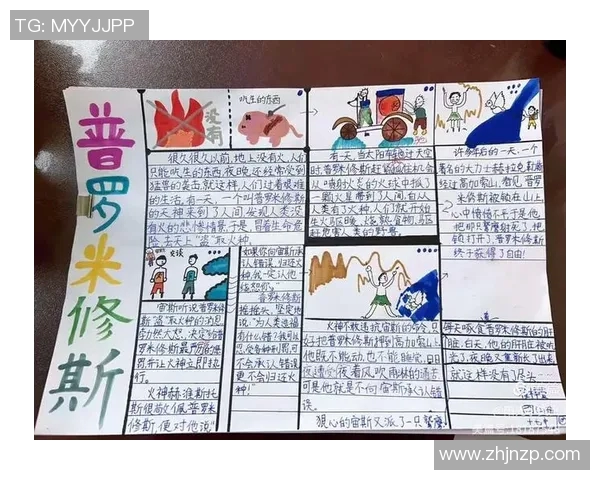 TG: MYYJJPP
普罗米修斯
没有
吃生的东西
很久很久以前,地上没有火,人们
只能吃生的东西,夜晚还经常受到
猛兽的袭击,就这样,人们过着艰难
的生活。有一天,一个叫普罗米修斯
的天神来到了人间,发现人类没
有火的悲惨情景,于是,冒着生命危
险,去天上“盗”取火种。
有一天,当太阳车经过天空
时,普罗米修斯赶了
人类有了火种,人们就开始
生火取暖、烧熟食物,驱
赶危害人类的野兽。
许多年后的一天,一个
著名的大力士赫拉克
经过高加索山,看见普罗
米修斯被锁在山上,
心中愤愤不
终于获得了自由!
交谈
宙斯听说普罗米
修斯“盗”取火种的消息,
勃然大怒,决定给普
罗米修斯最严厉的惩
罚,并让火神立即执
行。
火神赫淮斯托
斯很敬佩普罗米
修斯,便对他说:“
如果你向宙斯承
认错误,归还火
种,我一定让他
饶恕你。”
普罗米修斯
摇摇头,坚定地
说:“为人类造福
有什么错?我可以
忍受各种刑罚,可
不会承认错误,
更不会归还火
种!”
火神不敢违抗宙斯的命令,只
好把普罗米修斯押到高加索山上,
他既不能动,也不能睡觉,日日
夜夜遭受着风吹雨淋的痛苦
可是他就是不向宙斯承认错
误。
狠心的宙斯又派了一只鹫鹰
每天啄食普罗米修斯的肝
脏,白天,他的肝脏被吃
光了,夜晚又重新长了出来
就这样没有了尽头……
www.zhjnzp.com